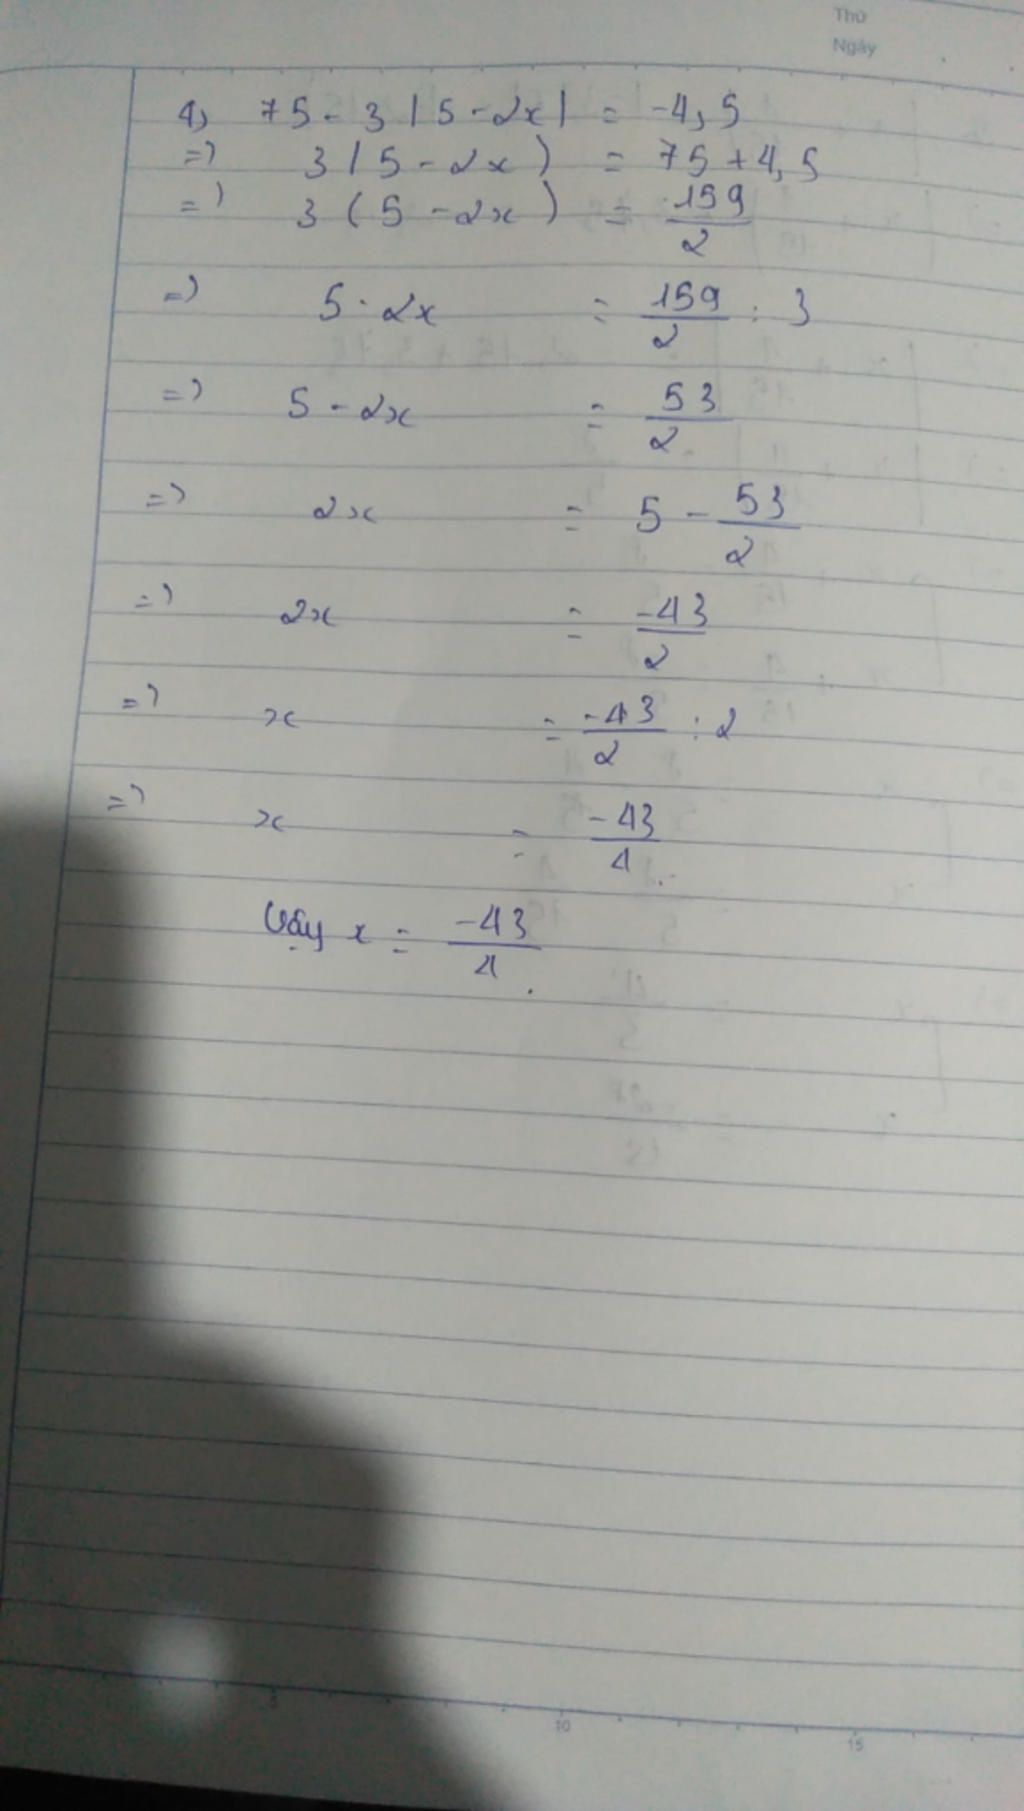 Thứ
Ngày
4, 75 - 3 | 5 - 2x | = -4,5
=) 3 | 5 - 2x ) = 75 + 4,5
=) 3 ( 5 - 2x ) = 159/2
=) 5 - 2x = 159/2 : 3
=) 5 - 2x = 53/2
=) 2x = 5 - 53/2
=) 2x = -43/2
=) x = -43/2 : 2
=) x = -43/4
Vậy x = -43/4.
5 10 15